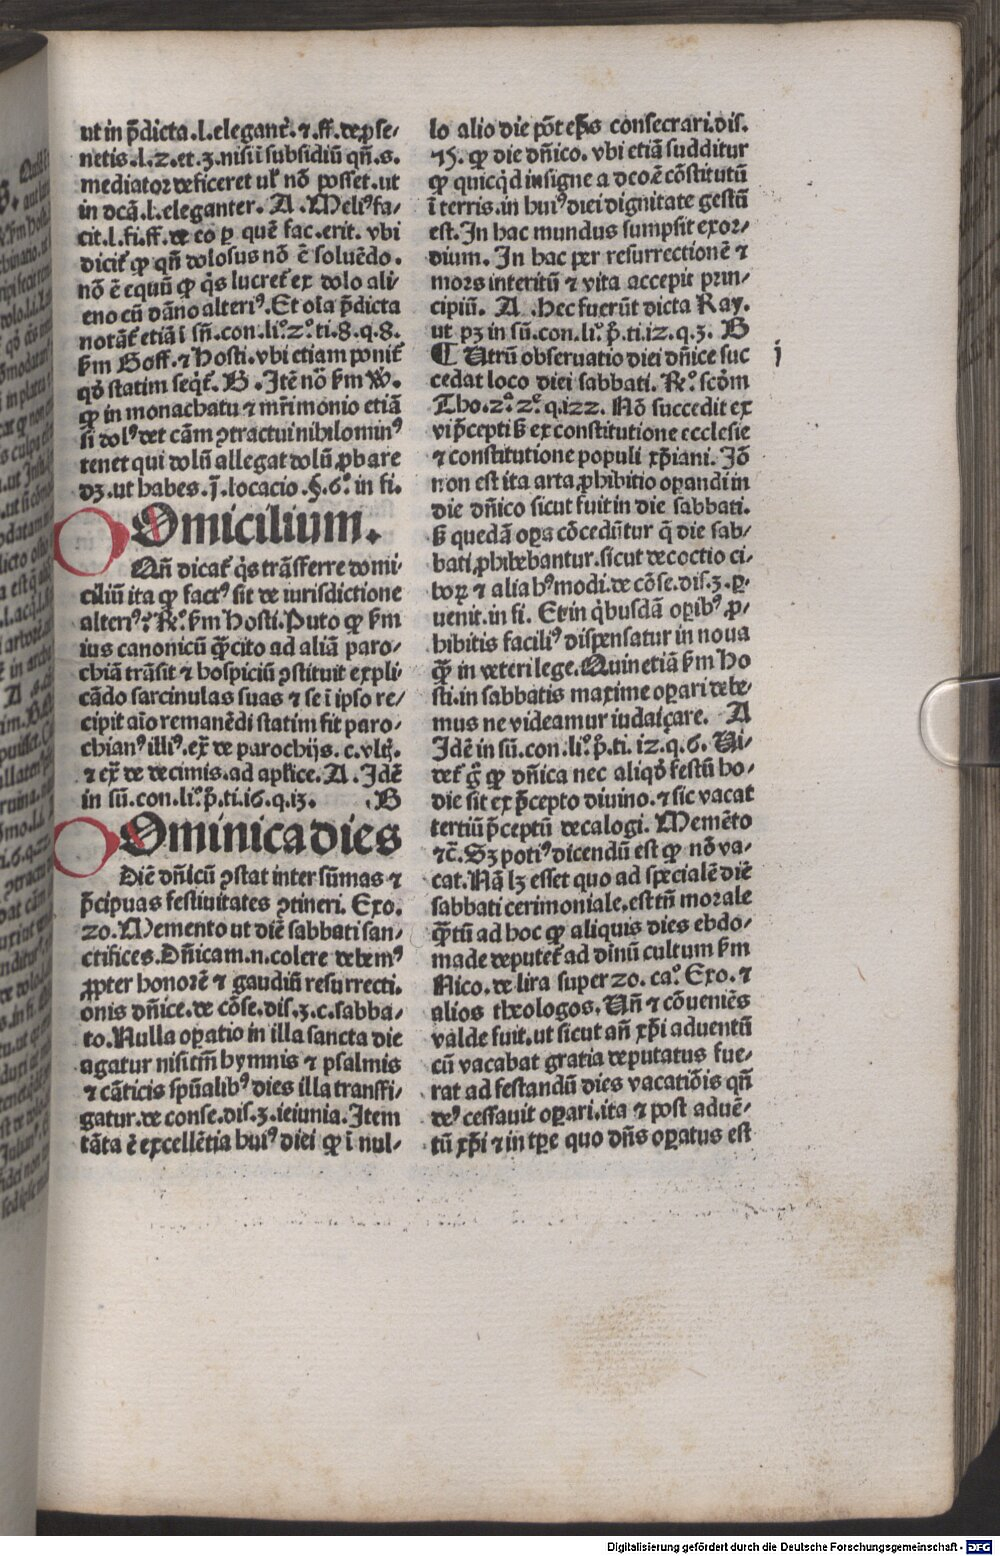 ut in p̄dicta.l.elegant᷑.⁊.ff.de p̱se⸗
netis.l.2.et.3.nisi ī subsidiū qñ.s.
mediator deficeret uł nō posset.ut
in dcā.l.eleganter. A .Meliꝰ fa⸗
cit.l.fi.ff.de eo ꝑ quē fac.erit. vbi
dicit᷑ ꝙ qñ dolosus nō ē soluēdo.
nō ē equū ꝙ q̇s lucret᷑ ex dolo ali⸗
eno cū dāno alteriꝰ. Et oīa p̄dicta
notāt᷑ etiā ī sū̄.con.li.º 2.º ti.8.q.8.
ẜm Goff.⁊ Hosti. vbi etiam ponit᷑
qḋ statim seq̇t᷑. B . Itē nō ẜm W̄.
ꝙ in monachatu ⁊ mr̄imonio etiā
si dolꝰ det cām ꝯtractui nihilominꝰ
tenet qui dolū allegat dolū ꝓbare
dꝫ. ut habes. j̄. locacio .§.6.º in fi.
Omicilium.
Qñ dicat᷑ q̇s trāsferre domi⸗
ciliū ita ꝙ factꝰ sit de iurisdictione
alteriꝰ? Rº. ẜm Hosti. Puto ꝙ ẜm
ius canonicū ꝙ̄cito ad aliā paro⸗
chiā trāsit ⁊ hospiciū ꝯstituit expli
cādo sarcinulas suas ⁊ se ī ipso re⸗
cipit aīo remanēdi statim fit paro⸗
chianꝰ illiꝰ. ex̄ de parochijs. c. vlt̄j.
⁊ ex̄ de decimis. ad apl̄ice. A . Idē
in sū.con.li.º p̄.ti.16.q.13. . B
Ominica dies
Diē dn̄icū ꝯstat inter sūmas ⁊
p̄cipuas festiuitates ꝯtineri. Exo.
20. Memento ut diē sabbati san⸗
ctifices. Dn̄icam.n.colere debemꝰ
ꝓpter honorē ⁊ gaudiū resurrecti.
onis dn̄ice. de cōse.dis.3.c.sabba⸗
to. Nulla oꝑatio in illa sancta die
agatur nisi tm̄ hymnis ⁊ psalmis
⁊ cāticis spūalibꝰ dies illa transfi⸗
gatur. de conse.dis.3.ieiunia. Item
tāta ē excellētia huiꝰ diei ꝙ ī nul⸗
lo alio die pōt ep̄s consecrari. dis.
75. ꝙ die dn̄ico. vbi etiā sudditur
ꝙ quicq̇d insigne a deo ē cōstitutū
ī terris. in huiꝰ diei dignitate gestū
est. In hac mundus sumpsit exor⸗
dium. In hac per resurrectionē ⁊
mors interitū ⁊ vita accepit prin⸗
cipiū. A . hec fuerūt dicta Ray.
ut pꝫ in sū.con.li.º p̄.ti.12.q.3. B
¶ Utrū obseruatio diei dn̄ice suc
cedat loco diei sabbati. Rº. scḋm
Tho.2.ª 2.ᵉ q.122. Nō succedit ex
vi p̄cepti ẜ ex constitutione ecclesie
⁊ constitutione populi xp̄iani. Iō
non est ita arta ꝓhibitio oꝑandi in
die dn̄ico sicut fuit in die sabbati.
ẜ quedā oꝑa cōcedūtur q̄ die sab⸗
bati ꝓhibebantur. sicut decoctio ci⸗
borꝝ ⁊ alia hꝰmodi. de cōse.dis.3. ꝑ⸗
uenit. in fi. Et in q̇busdā oꝑibꝰ ꝓ⸗
hibitis faciliꝰ dispensatur in noua
ꝙ̄ in veteri lege. Quin etiā ẜm Ho
sti. in sabbatis maxime oꝑari debe⸗
mus ne videamur iudaiçare. A
Idē in sū.con.li.º p̄.ti. 12. q. 6. Vi⸗
det᷑ g̊ ꝙ dn̄ica nec aliqḋ festū ho⸗
die sit ex p̄cepto diuino. ⁊ sic vacat
tertiū p̄ceptū decalogi. Memēto
⁊c̄. Sꝫ potiꝰ dicendū est ꝙ nō va⸗
cat. Nā lꝫ esset quo ad specialē diē
sabbati cerimoniale. est tn̄ morale
ꝙ̄tū ad hoc ꝙ aliquis dies ebdo⸗
made deputet᷑ ad dīnū cultum ẜm
Nico. de lira super 20. ca.º Exo. ⁊
alios theologos. Uñ ⁊ cōueniēs
valde fuit. ut sicut añ xp̄i aduentū
cū vacabat gratia deputatus fue⸗
rat ad festandū dies vacatiōis qñ
deꝰ cessauit oꝑari. ita ⁊ post aduē⸗
tū xp̄i ⁊ in tꝑe quo dn̄s oꝑatus est
j
Digitalisierung gefördert durch die Deutsche Forschungsgemeinschaft - DFG